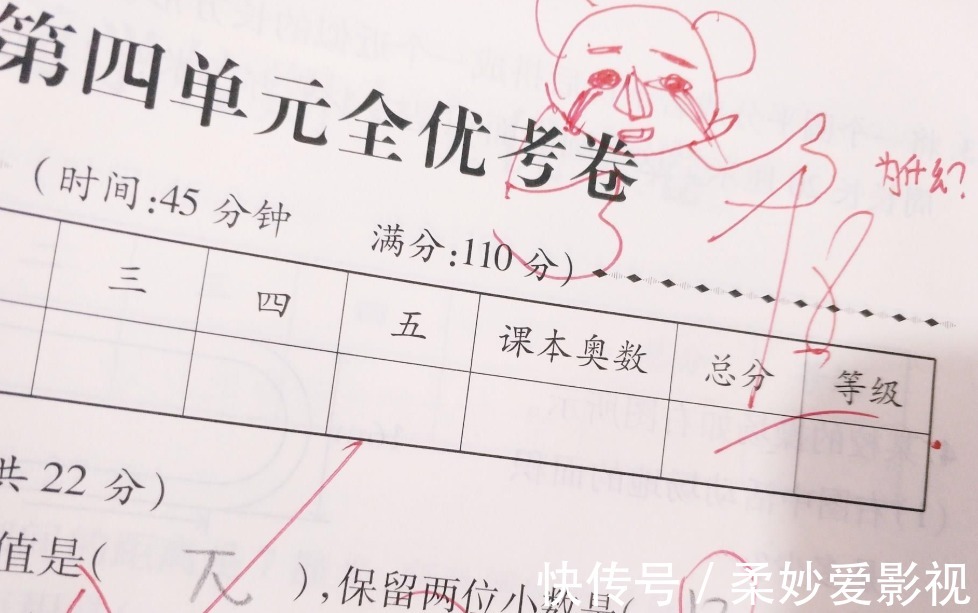 第四单元全优考卷
为什么?
(时间:45分钟 满分:110分)
三 四 五 课本奥数 总分 等级
共22分)
值是( π ),保留两位小数是(
快传号 / 柔妙爱影视